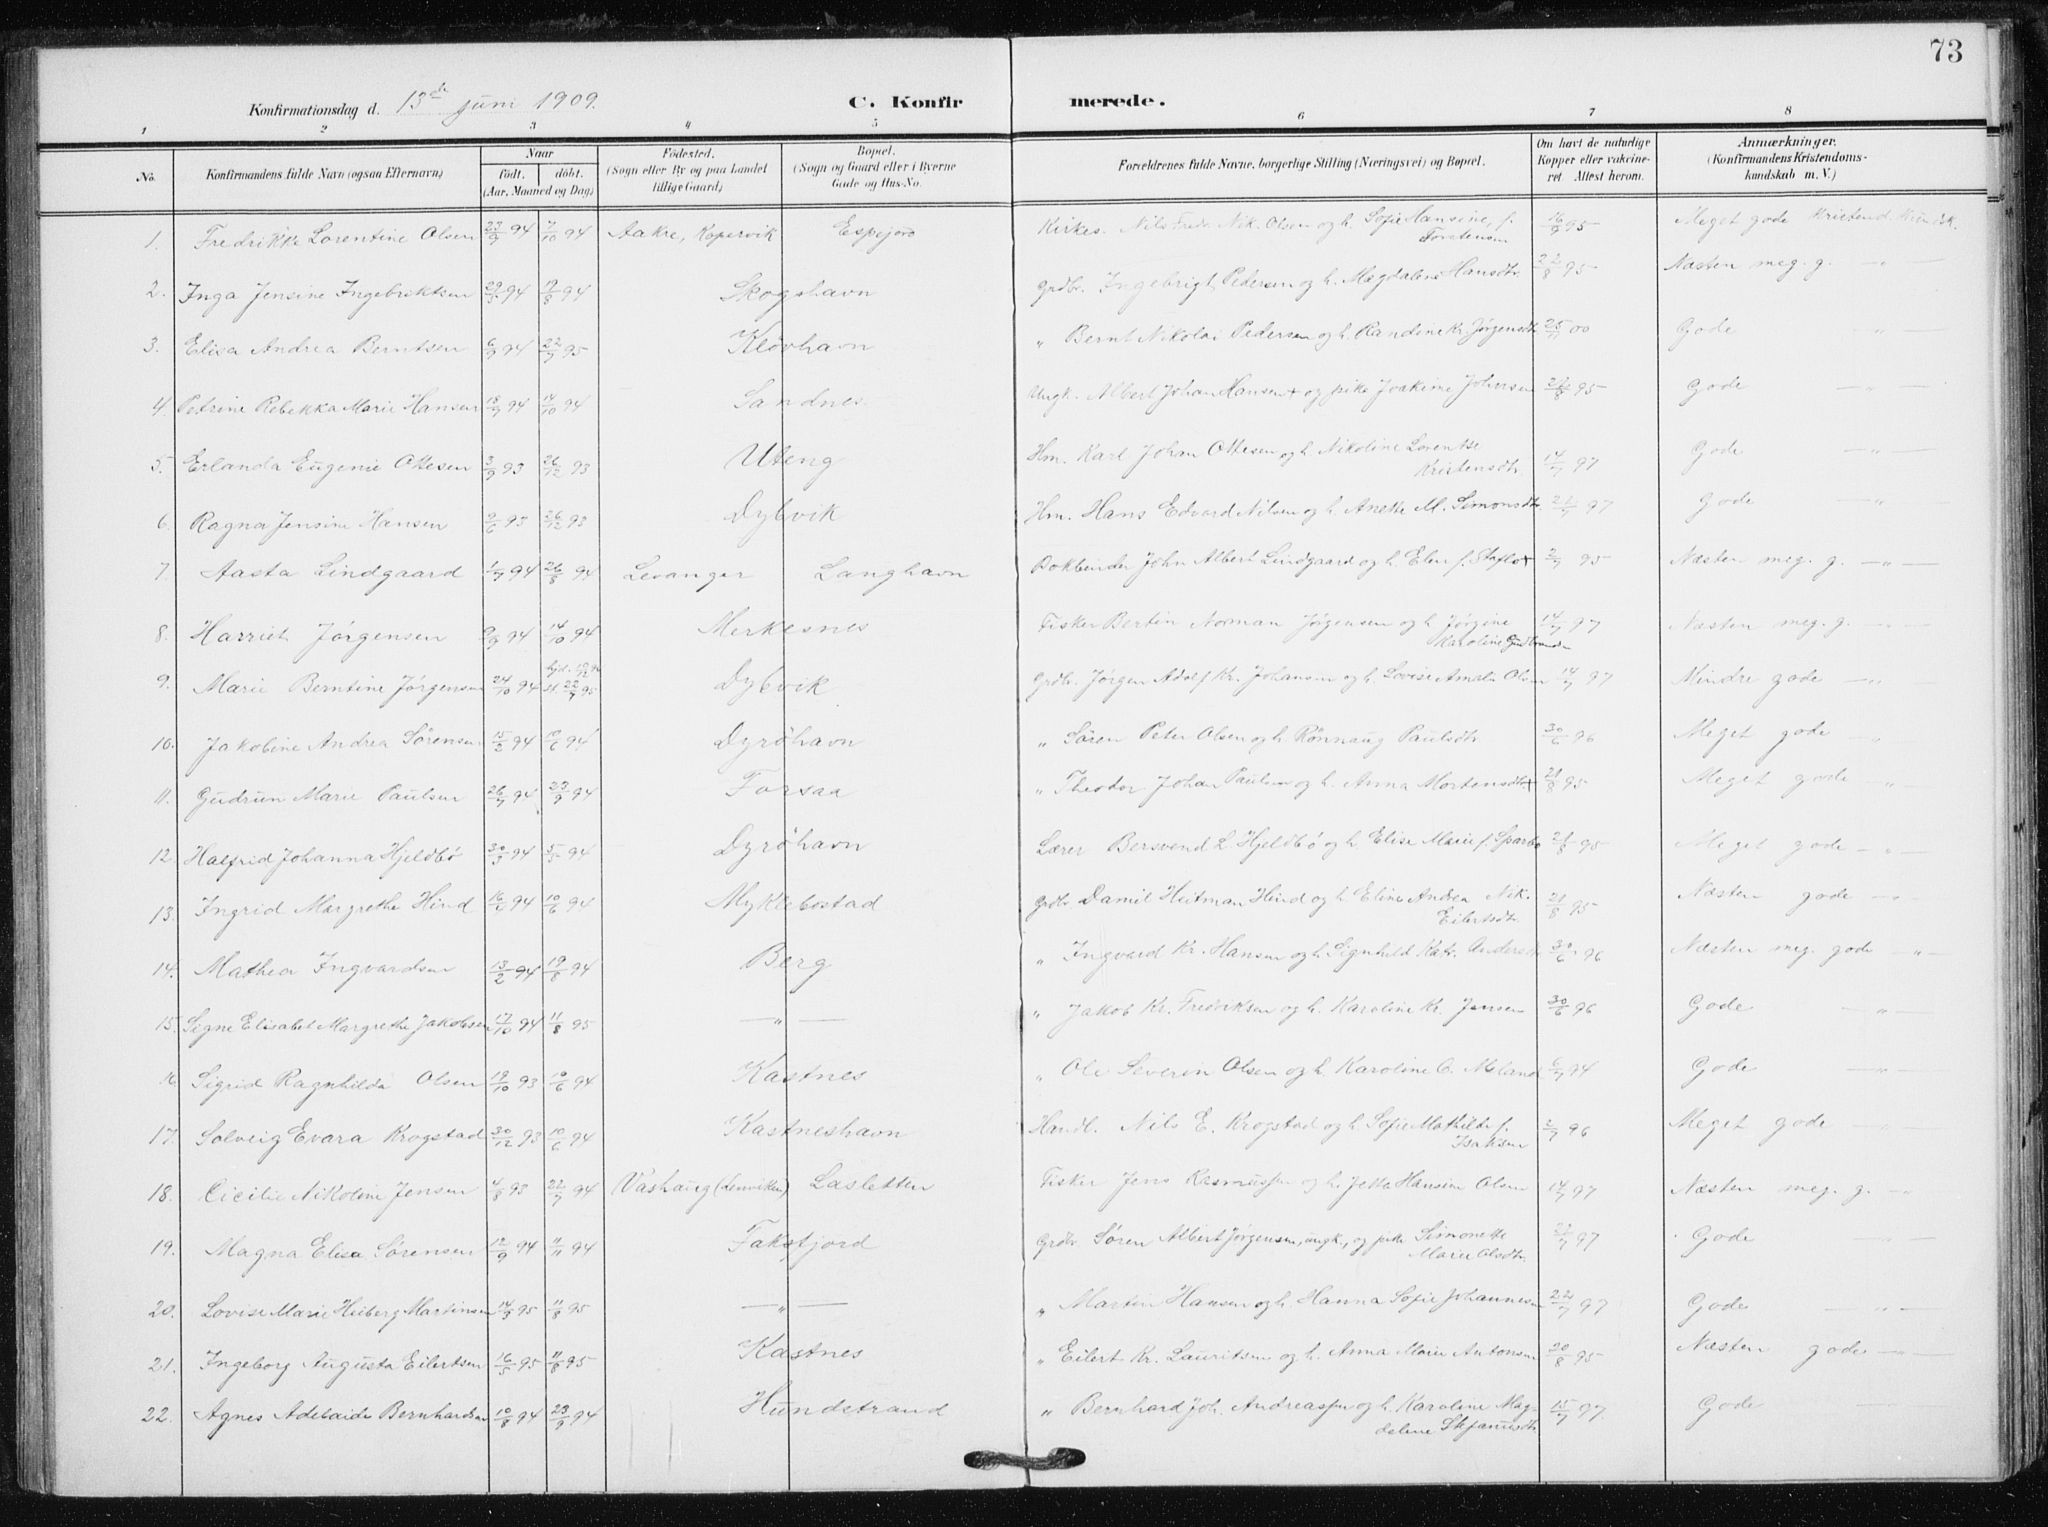 73
Konfirmationsdag d. 13de juni 1909. C. Konfirmerede.
1 2 3 4 5 6 7 8
No. Konfirmandens fulde Navn (ogsaa Efternavn) Naar født. døbt. (Aar, Maaned og Dag) Fødested. (Sogn eller By og paa Landet tillige Gaard) Bopæl. (Sogn og Gaard eller i Byerne Gade og Hus-No. Forældrenes fulde Navne, borgerlige Stilling (Næringsvei) og Bopæl. Om havt de naturlige Kopper eller vakcineret. Attest herom. Anmærkninger. (Konfirmandens Kristendomskundskab m. V.)
1. Fredrikke Lorentine Olsen 23/9 94 7/10 94 Aakre, Kopervik Espejord Kirkes. Nils Fredr. Nik. Olsen og h. Sofie Hansine, f. Torstensen 16/9 95 Meget gode Kristend. Kundsk.
2. Inga Jensine Ingebriktsen 94 19/8 94 Skogshavn Grdbr. Ingebrigt Pedersen og h. Magdalene Hansdtr. 22/8 95 Næsten meg. g. — " —
3. Elisa Andrea Berntsen 6/9 94 22/7 95 Kløvhavn " Bernt Nikolai Pedersen og h. Randine Kr. Jørgensdtr. 25/11 00 Gode — " —
4. Petrine Rebekka Marie Hansen 18/7 94 14/10 94 Sandnes Ungk. Albert Johan Hansen + og pike Joakime Johnsen 95 Gode — " —
5. Erlanda Eugenie Ottesen 3/9 93 26/12 93 Uteng Hm. Karl Johan Ottesen og h. Nikoline Lorentse Kristensdtr. 14/7 97 Gode — " —
6. Ragna Jensine Hansen 9/6 93 26/12 93 Dybvik Hm. Hans Edvard Nilsen og h. Anethe M. Simonsdtr. 97 Gode — "
7. Aasta Lindgaard 1/7 94 26/8 94 Levanger Langhavn Bokbinder John Albert Lindgaard og h. Elen f. Stafto + 2/7 95 Næsten meg. g. — " —
8. Harriet Jørgensen 9/9 94 14/10 94 Merkesnes Fisker Bertin Norman Jørgensen og h. Jørgine Karoline Gudbrands. 14/7 97 Næsten meg. g. — " —
9. Marie Berntine Jørgensen 24/10 94 hjd. st. 22/7 95 Dybvik Grdbr. Jørgen Adolf Kr. Johansen og h. Lovise Amalie Olsen 14/7 97 Mindre gode — " —
10. Jakobine Andrea Sørensen 15/2 94 10/6 94 Dyröhavn " Søren Peter Olsen og h. Rönnaug Paulsdtr. 30/6 96 Meget gode — "
11. Gudrun Marie Paulsen 26/7 94 23/9 94 Forsaa " Theodor Johan Paulsen og h. Anna Mortensdtr. + 21/8 95 Meget gode — " —
12. Halfrid Johanna Hjeldbö 30/3 94 5/5 94 Dyröhavn Lærer Bersvend L. Hjeldbö og h. Elise Marie f. Sparbo 21/8 95 Meget gode — " —
13. Ingrid Margrethe Hind 16/2 94 10/6 94 Myklebostad Grdbr. Daniel Heitman Hind og h. Eline Andrea Nik. Eilertsdtr. 21/8 95 Næsten gode — " —
14. Mathea Ingvardsen 13/2 94 19/8 94 Berg " Ingvard Kr. Hansen og h. Signhild Katr. Andersdtr. 30/6 96 Næsten meg. gode — " —
15. Signe Elisabet Margrethe Jakobsen 17/10 94 11/8 95 — " — " Jakob Kr. Fredriksen og h. Karoline Kr. Jensen 30/6 96 Gode — " —
16. Sigrid Ragnhilda Olsen 19/10 93 10/6 94 Kastnes " Ole Severin Olsen og h. Karoline C. Meland 6/7 94 Gode — " —
17. Solveig Evara Krogstad 30/12 93 10/6 94 Kastneshavn Handl. Nils E. Krogstad og h. Sofie Mathilde f. Isaksen 2/7 96 Meget gode — " —
18. Cicilie Nikoline Jensen 4/8 93 22/7 94 Vashaug (Lenviken) Lasletten Fisker Jens Rasmussen og h. Jetta Hansine Olsen 14/7 97 Næsten meg. g. — " —
19. Magna Elisa Sørensen 12/9 94 11/11 94 Fakstjord Grdbr. Søren Albert Jørgensen, ungk., og pike Simonette Marie Olsdtr. 22/7 97 Gode — " —
20. Lovise Marie Heiberg Martinsen 14/3 95 11/8 95 — " — " Martin Hansen og h. Hanna Sofie Johannesen 22/7 97 Gode — " —
21. Ingeborg Augusta Eilertsen 16/5 95 11/8 95 Kastnes " Eilert Kr. Lauritsen og h. Anna Marie Antonsen 20/8 95 Næsten gode — " —
22. Agnes Adelaide Bernhardsen 10/8 94 23/9 94 Hundstrand " Bernhard Joh. Andreassen og h. Karoline Magdelene Stefanusdtr. 15/7 97. Gode